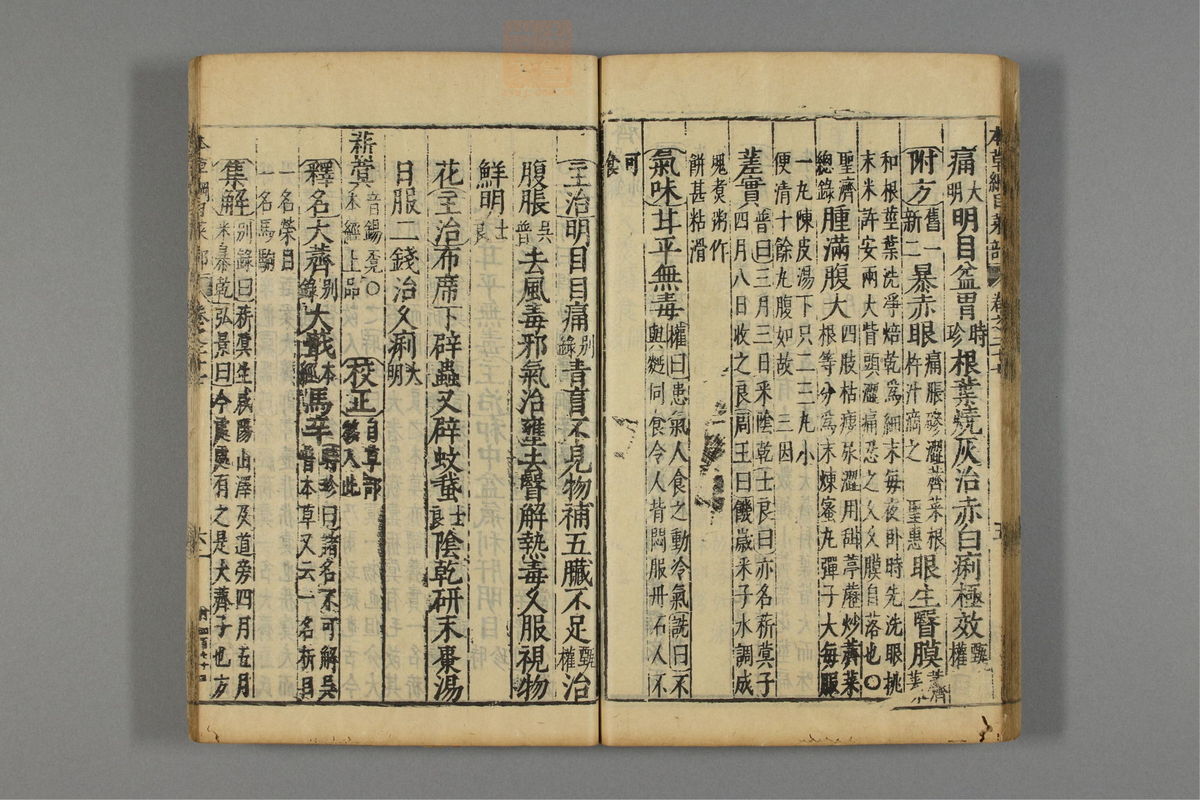 痛大明明目益胃時珍根葉燒灰治赤白痢極效甄權
附方舊一新二暴赤眼痛脹磣澀薺菜根杵汁滴之聖惠眼生瞖膜薺菜
和根莖葉洗淨焙乾爲細末每夜卧時先洗眼挑
末米許安兩大眥頭澀痛忍之久久膜自落也〇
聖濟總錄腫滿腹大四肢枯瘦尿澀用甜葶藶炒薺菜
根等分爲末煉蜜丸彈子大每服
一丸陳皮湯下只二三丸小
便清十餘丸腹如故三因
薺實普曰三月三日采陰乾士良曰亦名菥蓂子
四月八日收之良周王曰饑歲采子水調成
塊煮粥作
餅甚粘滑
氣味甘平無毒權曰患氣人食之動冷氣詵曰不
與麪同食令人背悶服丹石人不
可
食
主治明目目痛别錄青盲不見物補五臟不足甄權治
腹脹吳普去風毒邪氣治壅去瞖解熱毒久服視物
鮮明士良
花主治布席下辟蟲又辟蚊蛾士良陰乾研末棗湯
日服二錢治久痢大明
菥蓂音錫覓〇本經上品校正自草部移入此
釋名大薺别錄大蕺本經馬辛普時珍曰諸名不可解吳
普本草又云一名析目
一名榮目
一名馬駒
集解别錄曰菥蓂生咸陽山澤及道旁四月五月
采暴乾弘景曰今處處有之是大薺子也方